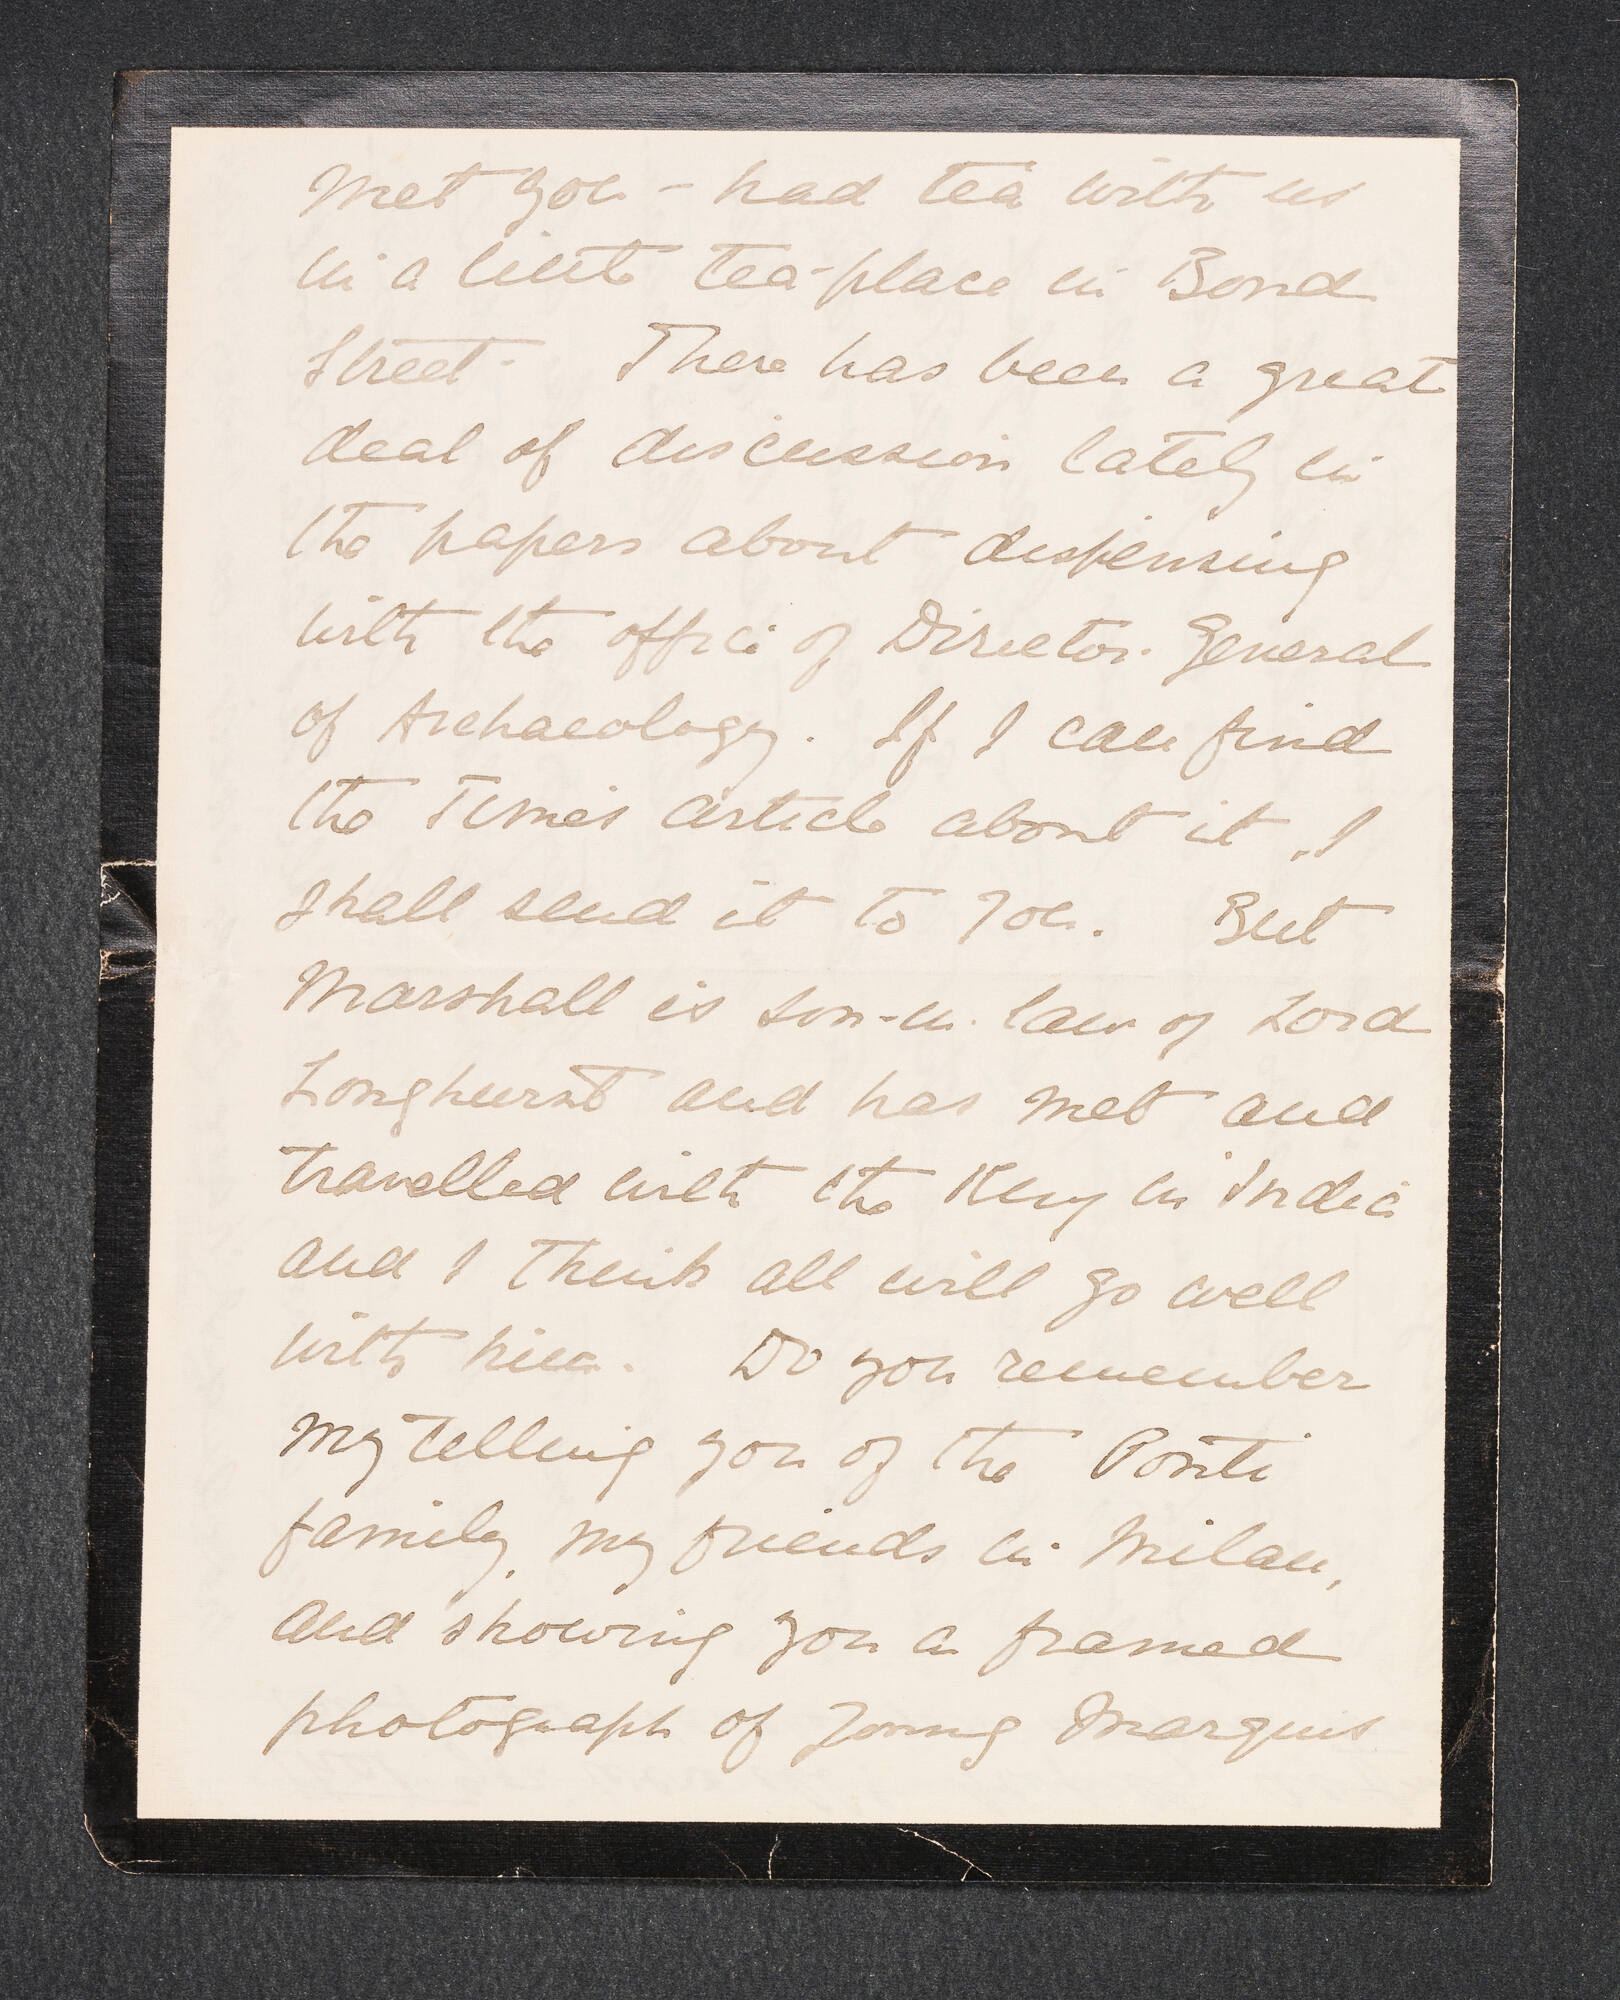 met you – had tea with us
in a little tea-place in Bond
Street. There has been a great
deal of discussion lately in
the papers about dispensing
with the office of Director General
of Archaeology. If I can find
the Times article about it, I
shall send it to you. But
Marshall is son-in-law of Lord
Longhurst and has met and
travelled with the King in India
and I think all will go well
with him. Do you remember
my telling you of the Ponti
family, my friends in Milan,
and showing you a framed
photograph of young Marquis